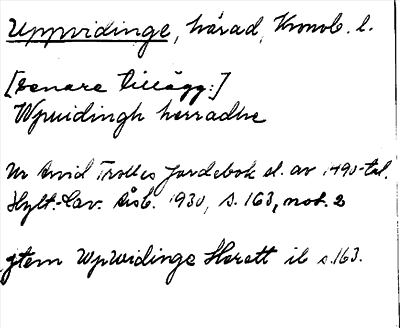 Uppvidinge, härad, Kronob. l.
[Senare tillägg:]
Wpuidingh herradhe
Ur Arvid Trolles Jordebok sl. av 1490-tal.
Hylt.-Cav. Årsb. 1930, s. 163, not. 2
gtem WpWidinge Herett ib s. 163.